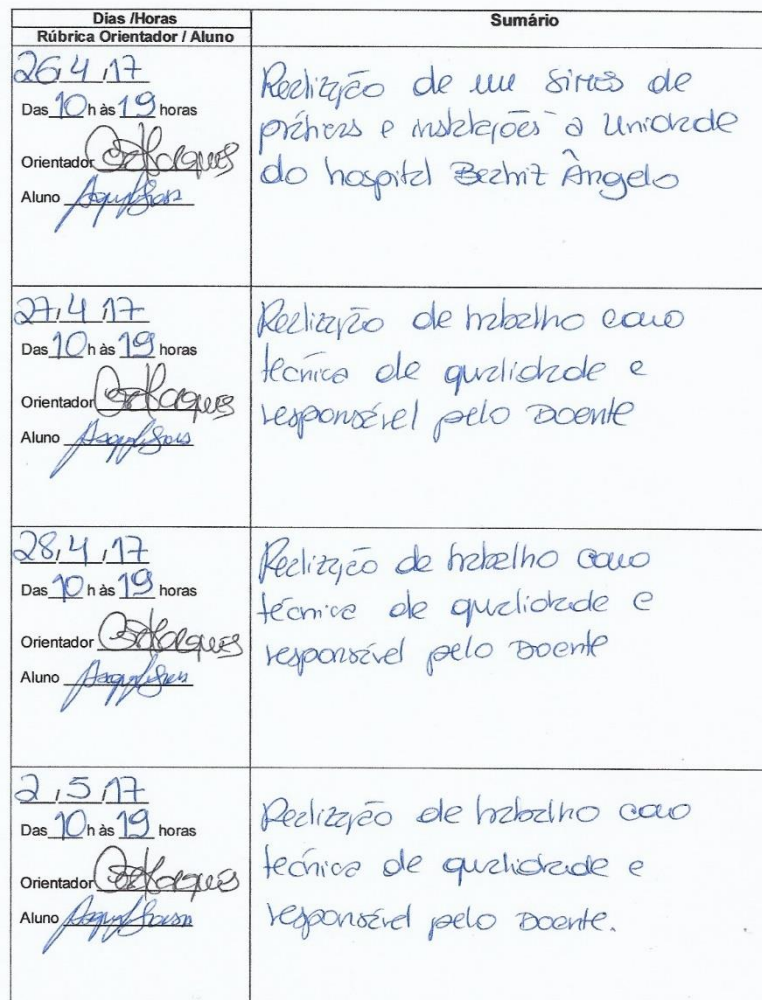 Dias /Horas
Rúbrica Orientador / Aluno
Sumário
26,4,17
Das 10 h às 19 horas
Orientador
Aluno
Realização de um de
práticas e instalações a Unidade
do hospital Beatriz Ângelo
27,4,17
Das 10 h às 19 horas
Orientador
Aluno
Realização de trabalho como
técnica de qualidade e
responsável pelo Doente
28,4,17
Das 10 h às 19 horas
Orientador
Aluno
Realização de trabalho como
técnica de qualidade e
responsável pelo Doente
2,5,17
Das 10 h às 19 horas
Orientador
Aluno
Realização de trabalho como
técnica de qualidade e
responsável pelo Doente.